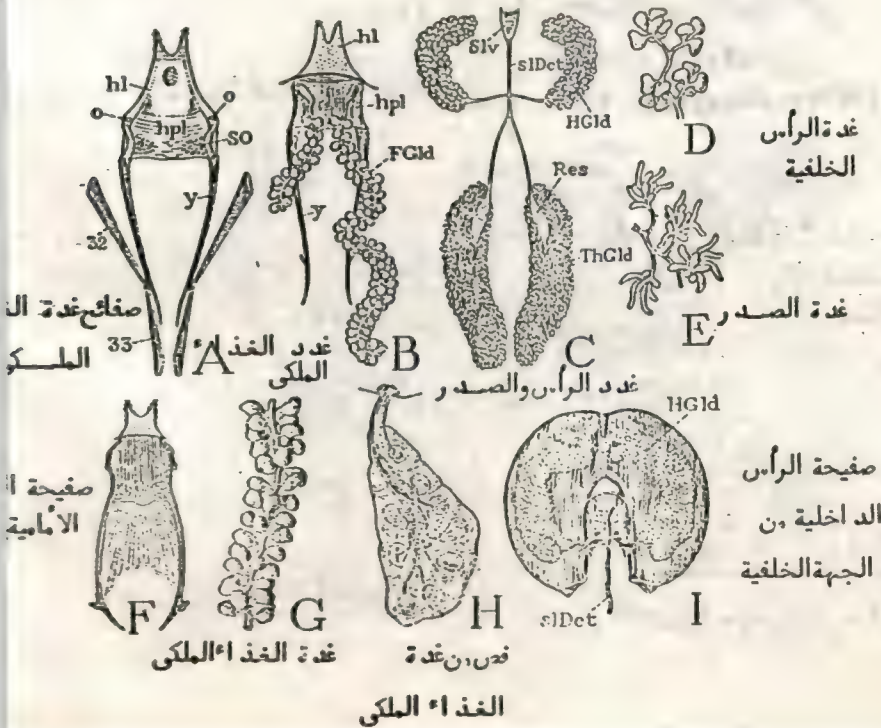 hl
o
o
hpl
SO
y
32
33
A
صفائح غدة
hl
hpl
FGld
y
B
غدد الغذاء
الملكى
Slv
slDct
HGld
Res
ThGld
C
غدد الرأس والصدر
D
غدة الرأس
الخلفية
E
غدة الصدر
F
صفيحة
الأمامية
G
غدة الغذاء الملكى
H
فص من غدة
الغذاء الملكى
HGld
slDct
I
صفيحة الرأس
الداخلية من
الجهة الخلفية